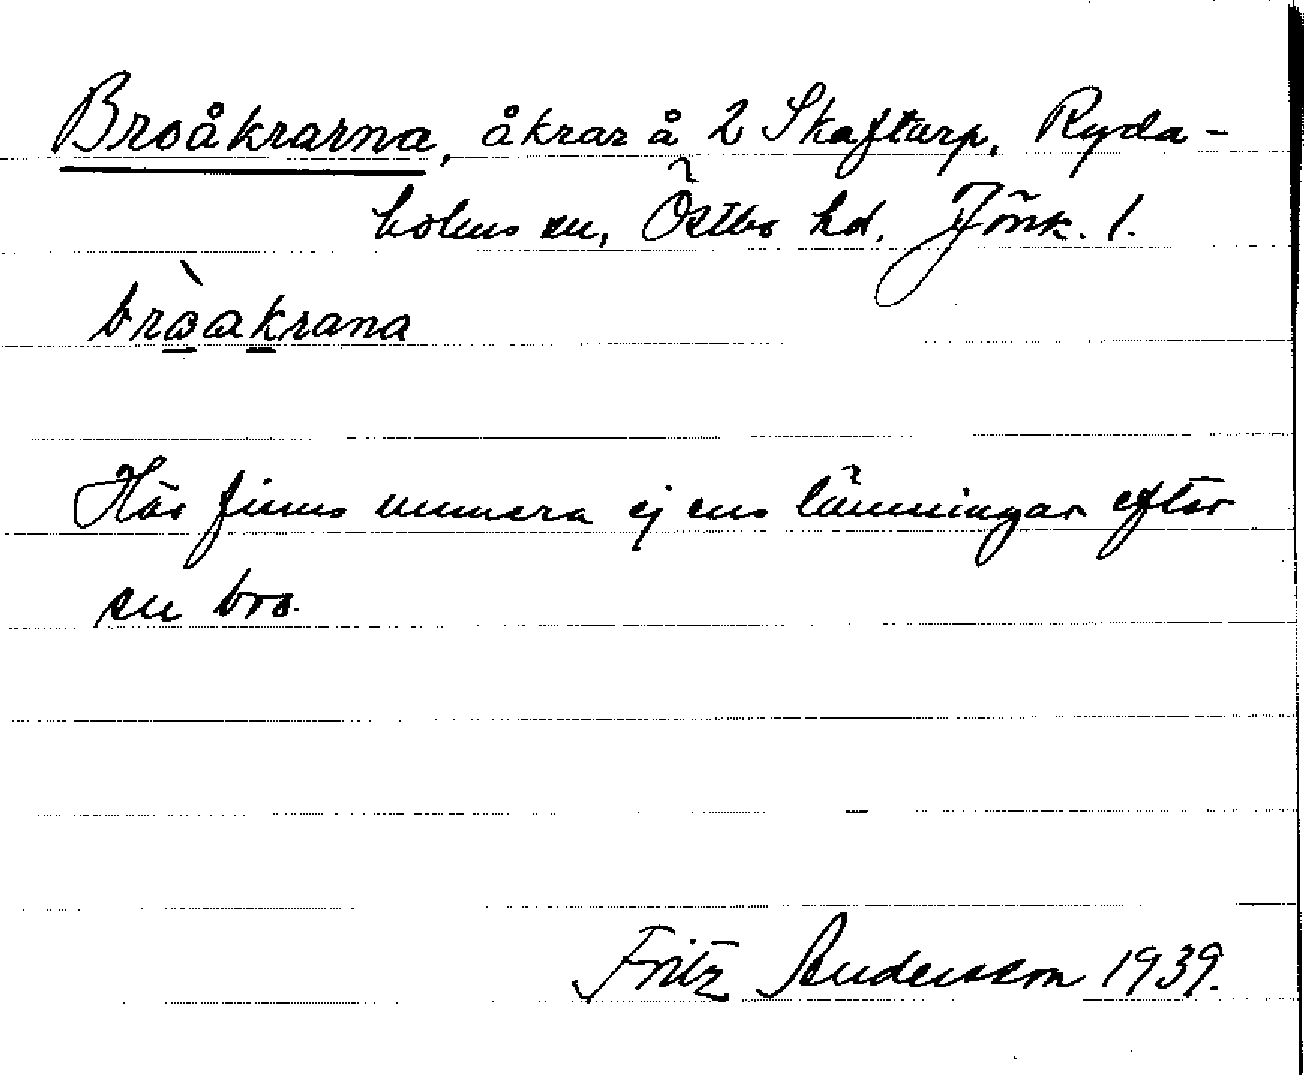 Broåkrarna, åkrar å 2 Skaftarp, Ryda-
holms sn, Östbo hd. Jönk. l.
bròakrana
Här finns numera ej ens lämningar efter
en bro.
Fritz Andersson 1939.